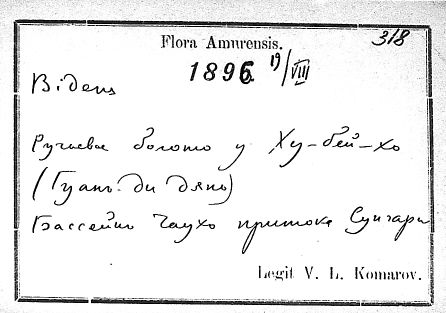 Flora Amurensis.
318
1896 19/VIII
Bidens
Ручьевое болото у Ху-бей-хо
(Гуань-ди дянь)
Бассейнъ Чаухо притока Сунгари
Legit V. L. Komarov.